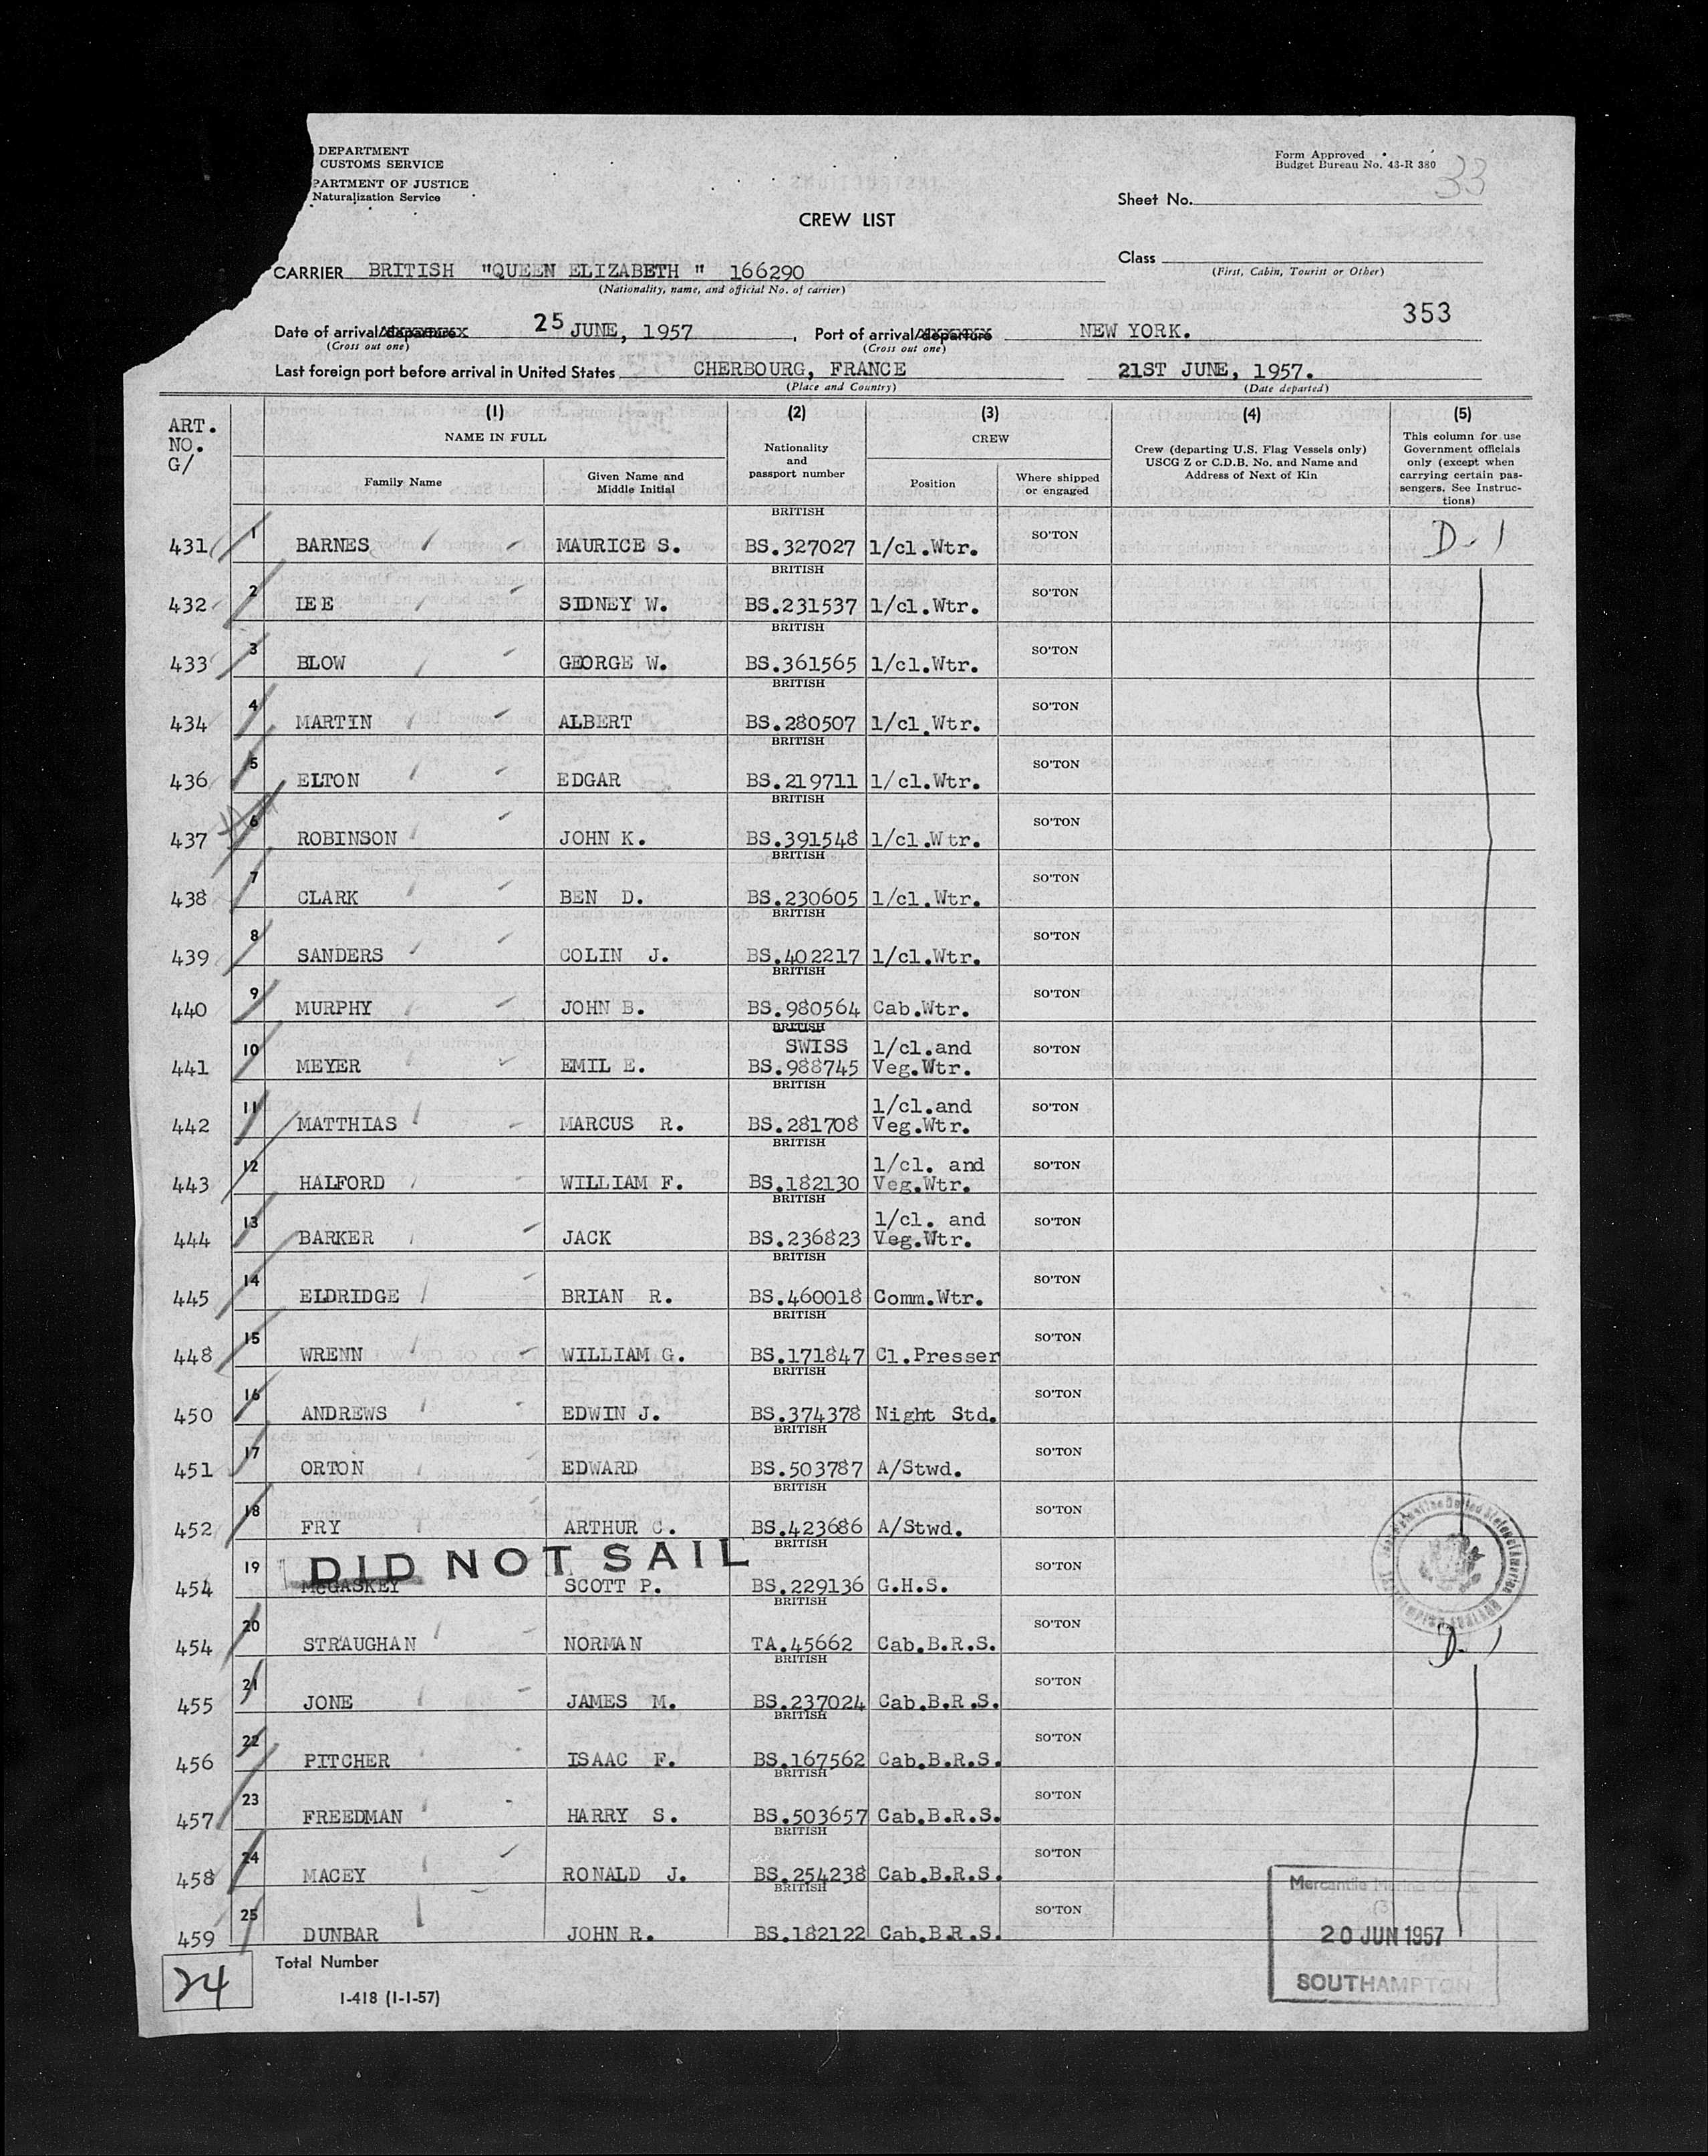 DEPARTMENT
CUSTOMS SERVICE
PARTMENT OF JUSTICE
Naturalization Service
Form Approved
Budget Bureau No. 43-R 380
33
Sheet No.
CREW LIST
Class
(First, Cabin, Tourist or Other)
CARRIER BRITISH "QUEEN ELIZABETH " 166290
(Nationality, name, and official No. of carrier)
353
Date of arrival/departure 25 JUNE, 1957, Port of arrival/departure NEW YORK.
(Cross out one) (Cross out one)
Last foreign port before arrival in United States CHERBOURG, FRANCE 21ST JUNE, 1957.
(Place and Country) (Date departed)
ART. NO. G/
(1) NAME IN FULL
Family Name
Given Name and Middle Initial
(2) Nationality and passport number
(3) CREW
Position
Where shipped or engaged
(4) Crew (departing U.S. Flag Vessels only) USCG Z or C.D.B. No. and Name and Address of Next of Kin
(5) This column for use Government officials only (except when carrying certain passengers. See Instructions)
431 1 BARNES MAURICE S. BRITISH BS.327027 1/cl.Wtr. SO'TON D-1
432 2 LEE SIDNEY W. BRITISH BS.231537 1/cl.Wtr. SO'TON
433 3 BLOW GEORGE W. BRITISH BS.361565 1/cl.Wtr. SO'TON
434 4 MARTIN ALBERT BRITISH BS.280507 1/cl.Wtr. SO'TON
436 5 ELTON EDGAR BRITISH BS.219711 1/cl.Wtr. SO'TON
437 6 ROBINSON JOHN K. BRITISH BS.391548 1/cl.Wtr. SO'TON
438 7 CLARK BEN D. BRITISH BS.230605 1/cl.Wtr. SO'TON
439 8 SANDERS COLIN J. BRITISH BS.402217 1/cl.Wtr. SO'TON
440 9 MURPHY JOHN B. BRITISH BS.980564 Cab.Wtr. SO'TON
441 10 MEYER EMIL E. BRITISH SWISS BS.988745 1/cl.and Veg.Wtr. SO'TON
442 11 MATTHIAS MARCUS R. BRITISH BS.281708 1/cl.and Veg.Wtr. SO'TON
443 12 HALFORD WILLIAM F. BRITISH BS.182130 1/cl. and Veg.Wtr. SO'TON
444 13 BARKER JACK BRITISH BS.236823 1/cl. and Veg.Wtr. SO'TON
445 14 ELDRIDGE BRIAN R. BRITISH BS.460018 Comm.Wtr. SO'TON
448 15 WRENN WILLIAM G. BRITISH BS.171847 Cl.Presser SO'TON
450 16 ANDREWS EDWIN J. BRITISH BS.374378 Night Std. SO'TON
451 17 ORTON EDWARD BRITISH BS.503787 A/Stwd. SO'TON
452 18 FRY ARTHUR C. BRITISH BS.423686 A/Stwd. SO'TON
DID NOT SAIL
454 19 McGASKEY SCOTT P. BRITISH BS.229136 G.H.S. SO'TON
454 20 STRAUGHAN NORMAN BRITISH TA.45662 Cab.B.R.S. SO'TON D-1
455 21 JONE JAMES M. BRITISH BS.237024 Cab.B.R.S. SO'TON
456 22 PITCHER ISAAC F. BRITISH BS.167562 Cab.B.R.S. SO'TON
457 23 FREEDMAN HARRY S. BRITISH BS.503657 Cab.B.R.S. SO'TON
458 24 MACEY RONALD J. BRITISH BS.254238 Cab.B.R.S. SO'TON
459 25 DUNBAR JOHN R. BRITISH BS.182122 Cab.B.R.S. SO'TON
Mercantile Marine
20 JUN 1957
SOUTHAMPTON
24
Total Number
I-418 (1-1-57)